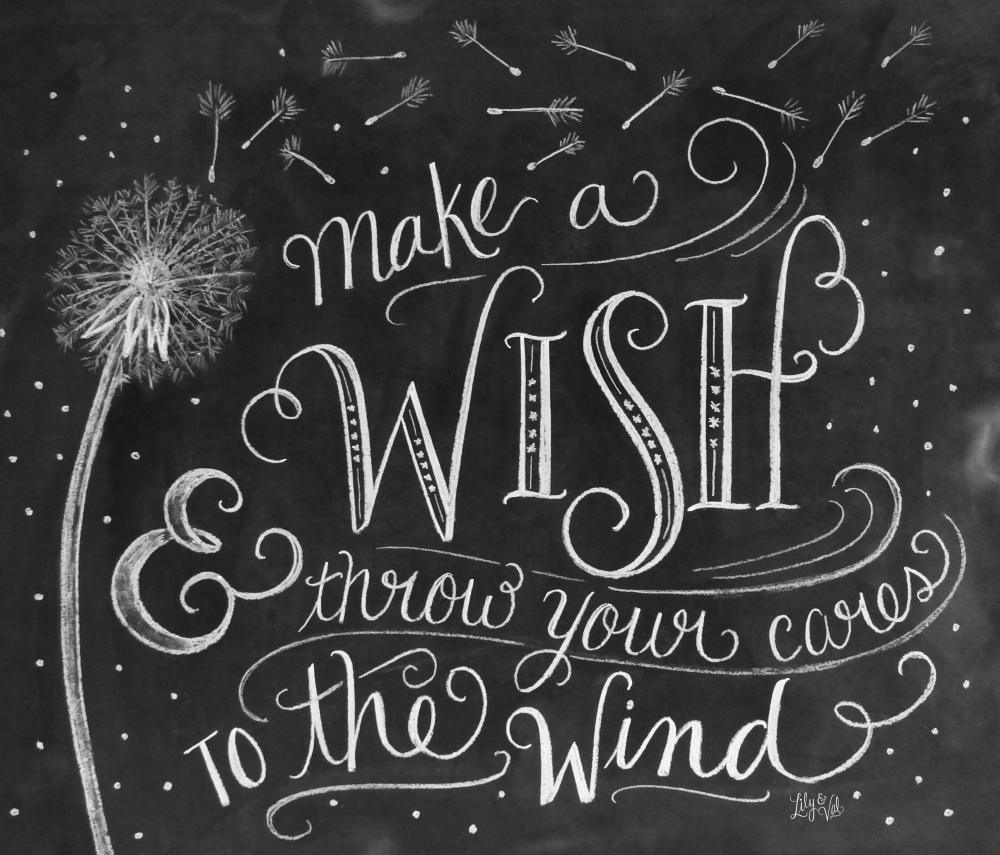 make a
WISH
& throw your cares
TO the Wind
Lily & Val